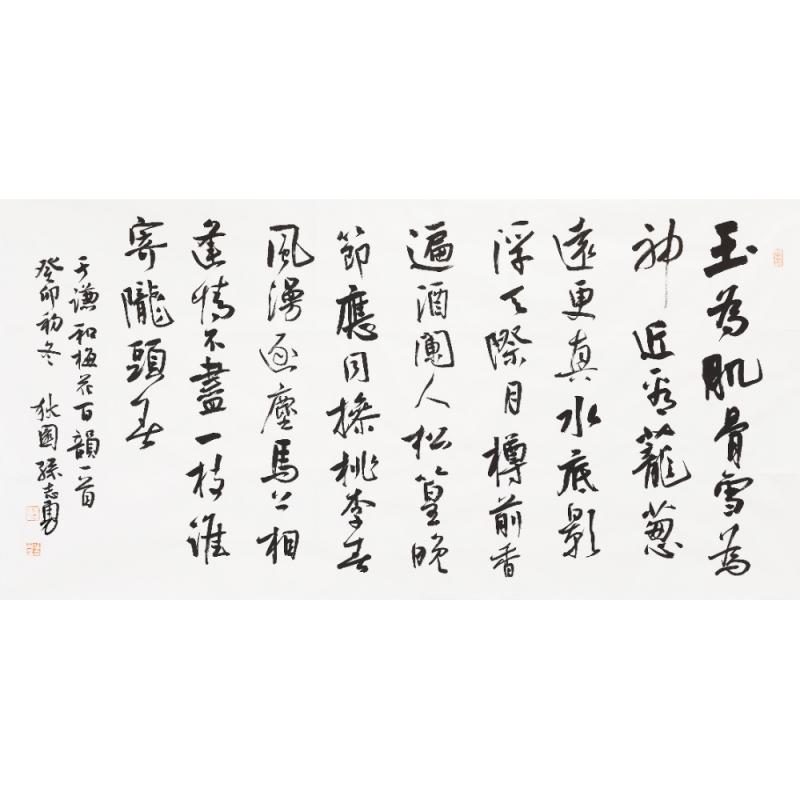 玉為肌骨雪為
神近看蘢葱
遠更真水底影
浮天際月樽前香
遍酒闌人松篁晚
節應同操桃李春
風漫逐塵馬上相
逢情不盡一枝誰
寄隴頭春
于謙和梅花百韻一首
癸卯初冬 國孫志勇